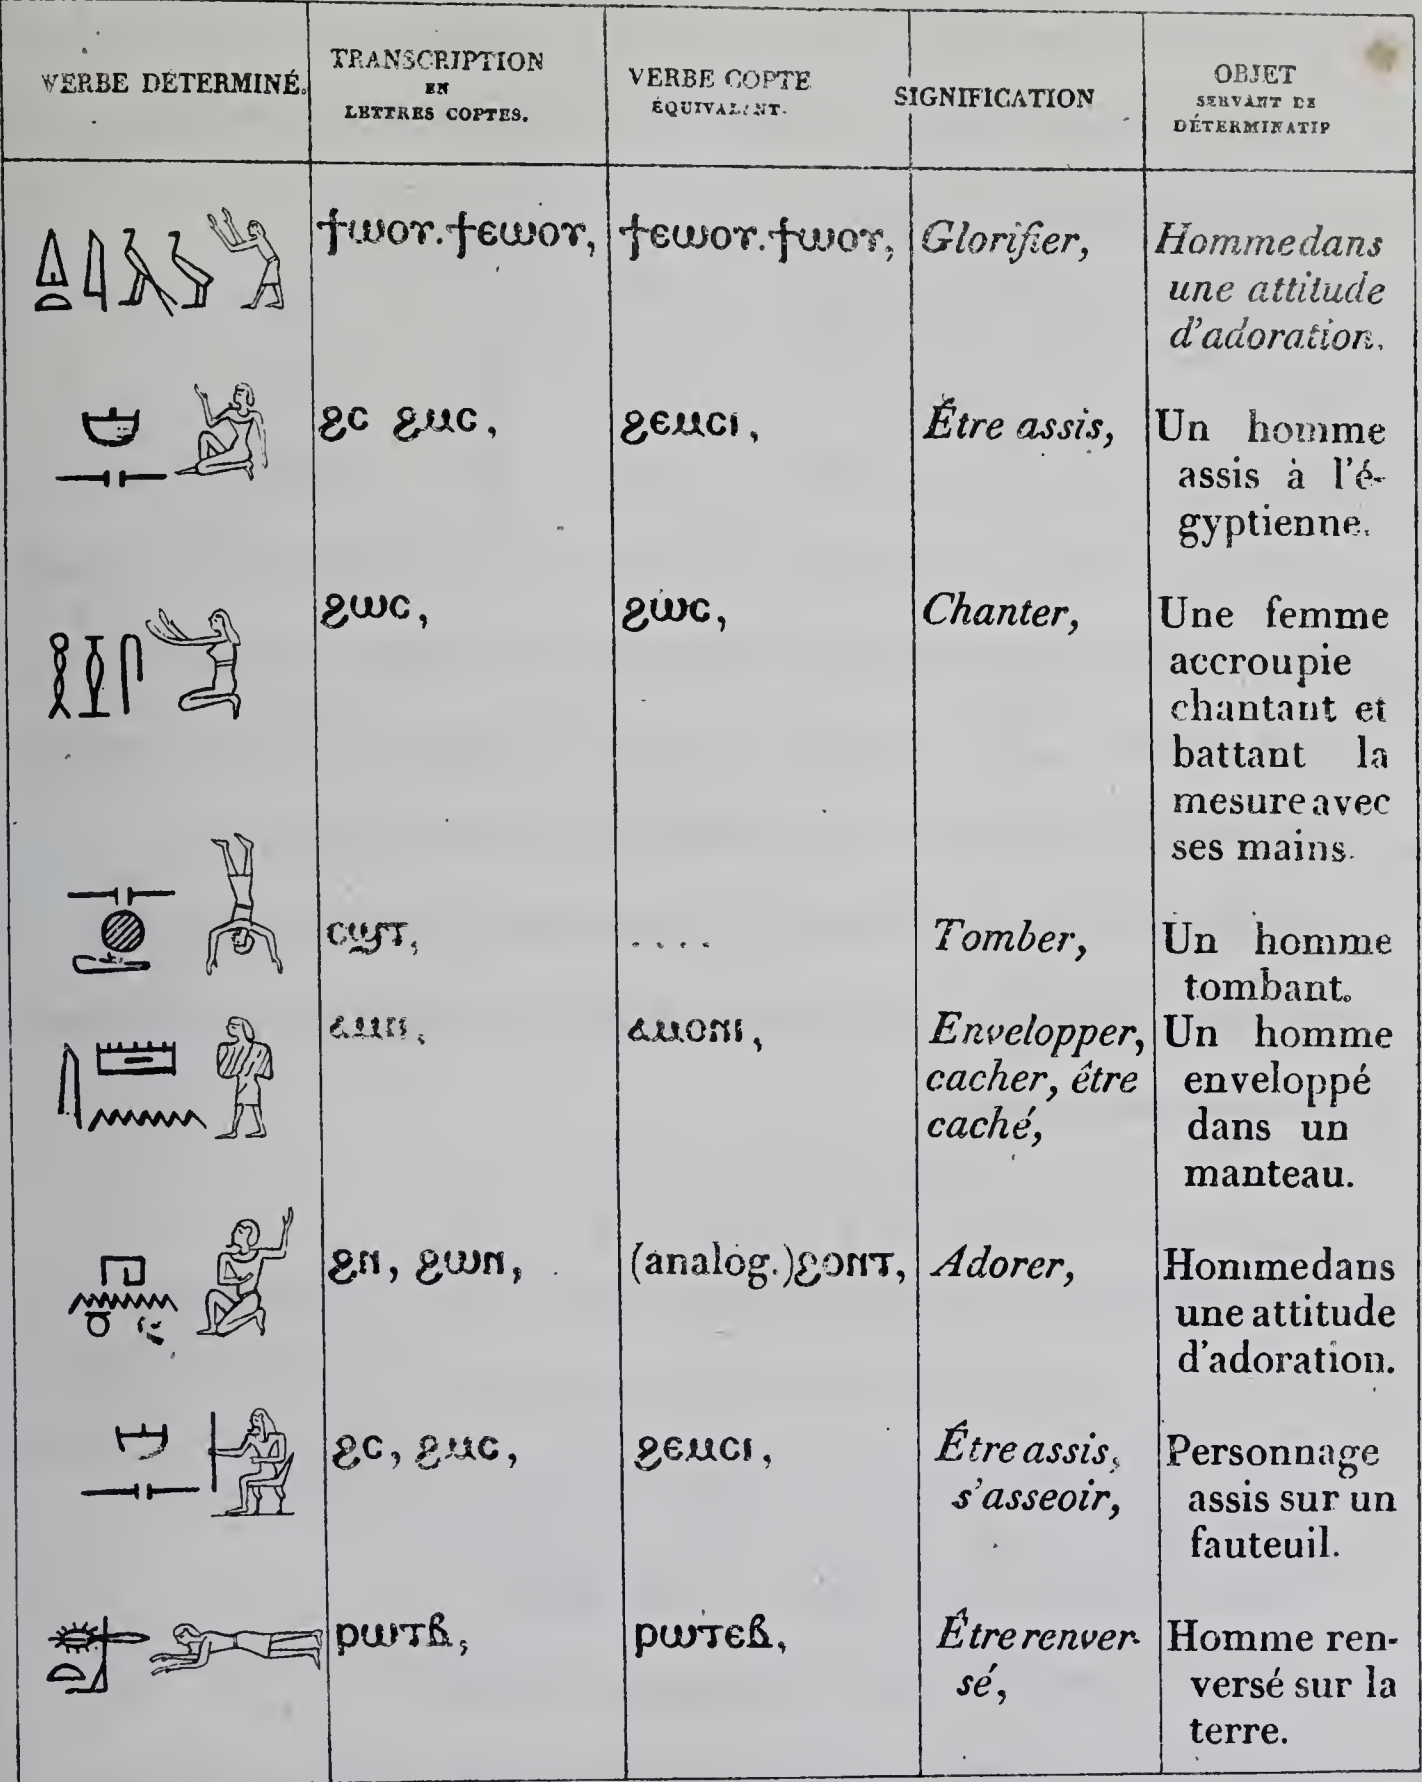 VERBE DÉTERMINÉ.
TRANSCRIPTION
EN
LETTRES COPTES.
VERBE COPTE
ÉQUIVALENT.
SIGNIFICATION
OBJET
SERVANT DE
DÉTERMINATIF
ϯⲱⲟⲩ. ϯⲉⲱⲟⲩ, ϯⲉⲱⲟⲩ. ϯⲱⲟⲩ, Glorifier, Homme dans
une attitude
d'adoration.
ϩⲥ ϩⲙⲥ, ϩⲉⲙⲥⲓ, Être assis, Un homme
assis à l'é-
gyptienne.
ϩⲱⲥ, ϩⲱⲥ, Chanter, Une femme
accroupie
chantant et
battant la
mesure avec
ses mains.
ⲥϣⲧ, .... Tomber, Un homme
tombant.
ⲁⲙⲛ, ⲁⲙⲟⲛⲓ, Envelopper, Un homme
cacher, être enveloppé
caché, dans un
manteau.
ϩⲛ, ϩⲱⲛ, (analog.) ϩⲟⲛⲧ, Adorer, Homme dans
une attitude
d'adoration.
ϩⲥ, ϩⲙⲥ, ϩⲉⲙⲥⲓ, Être assis, Personnage
s'asseoir, assis sur un
fauteuil.
ⲣⲱⲧⲃ, ⲣⲱⲧⲉⲃ, Être renver- Homme ren-
sé, versé sur la
terre.